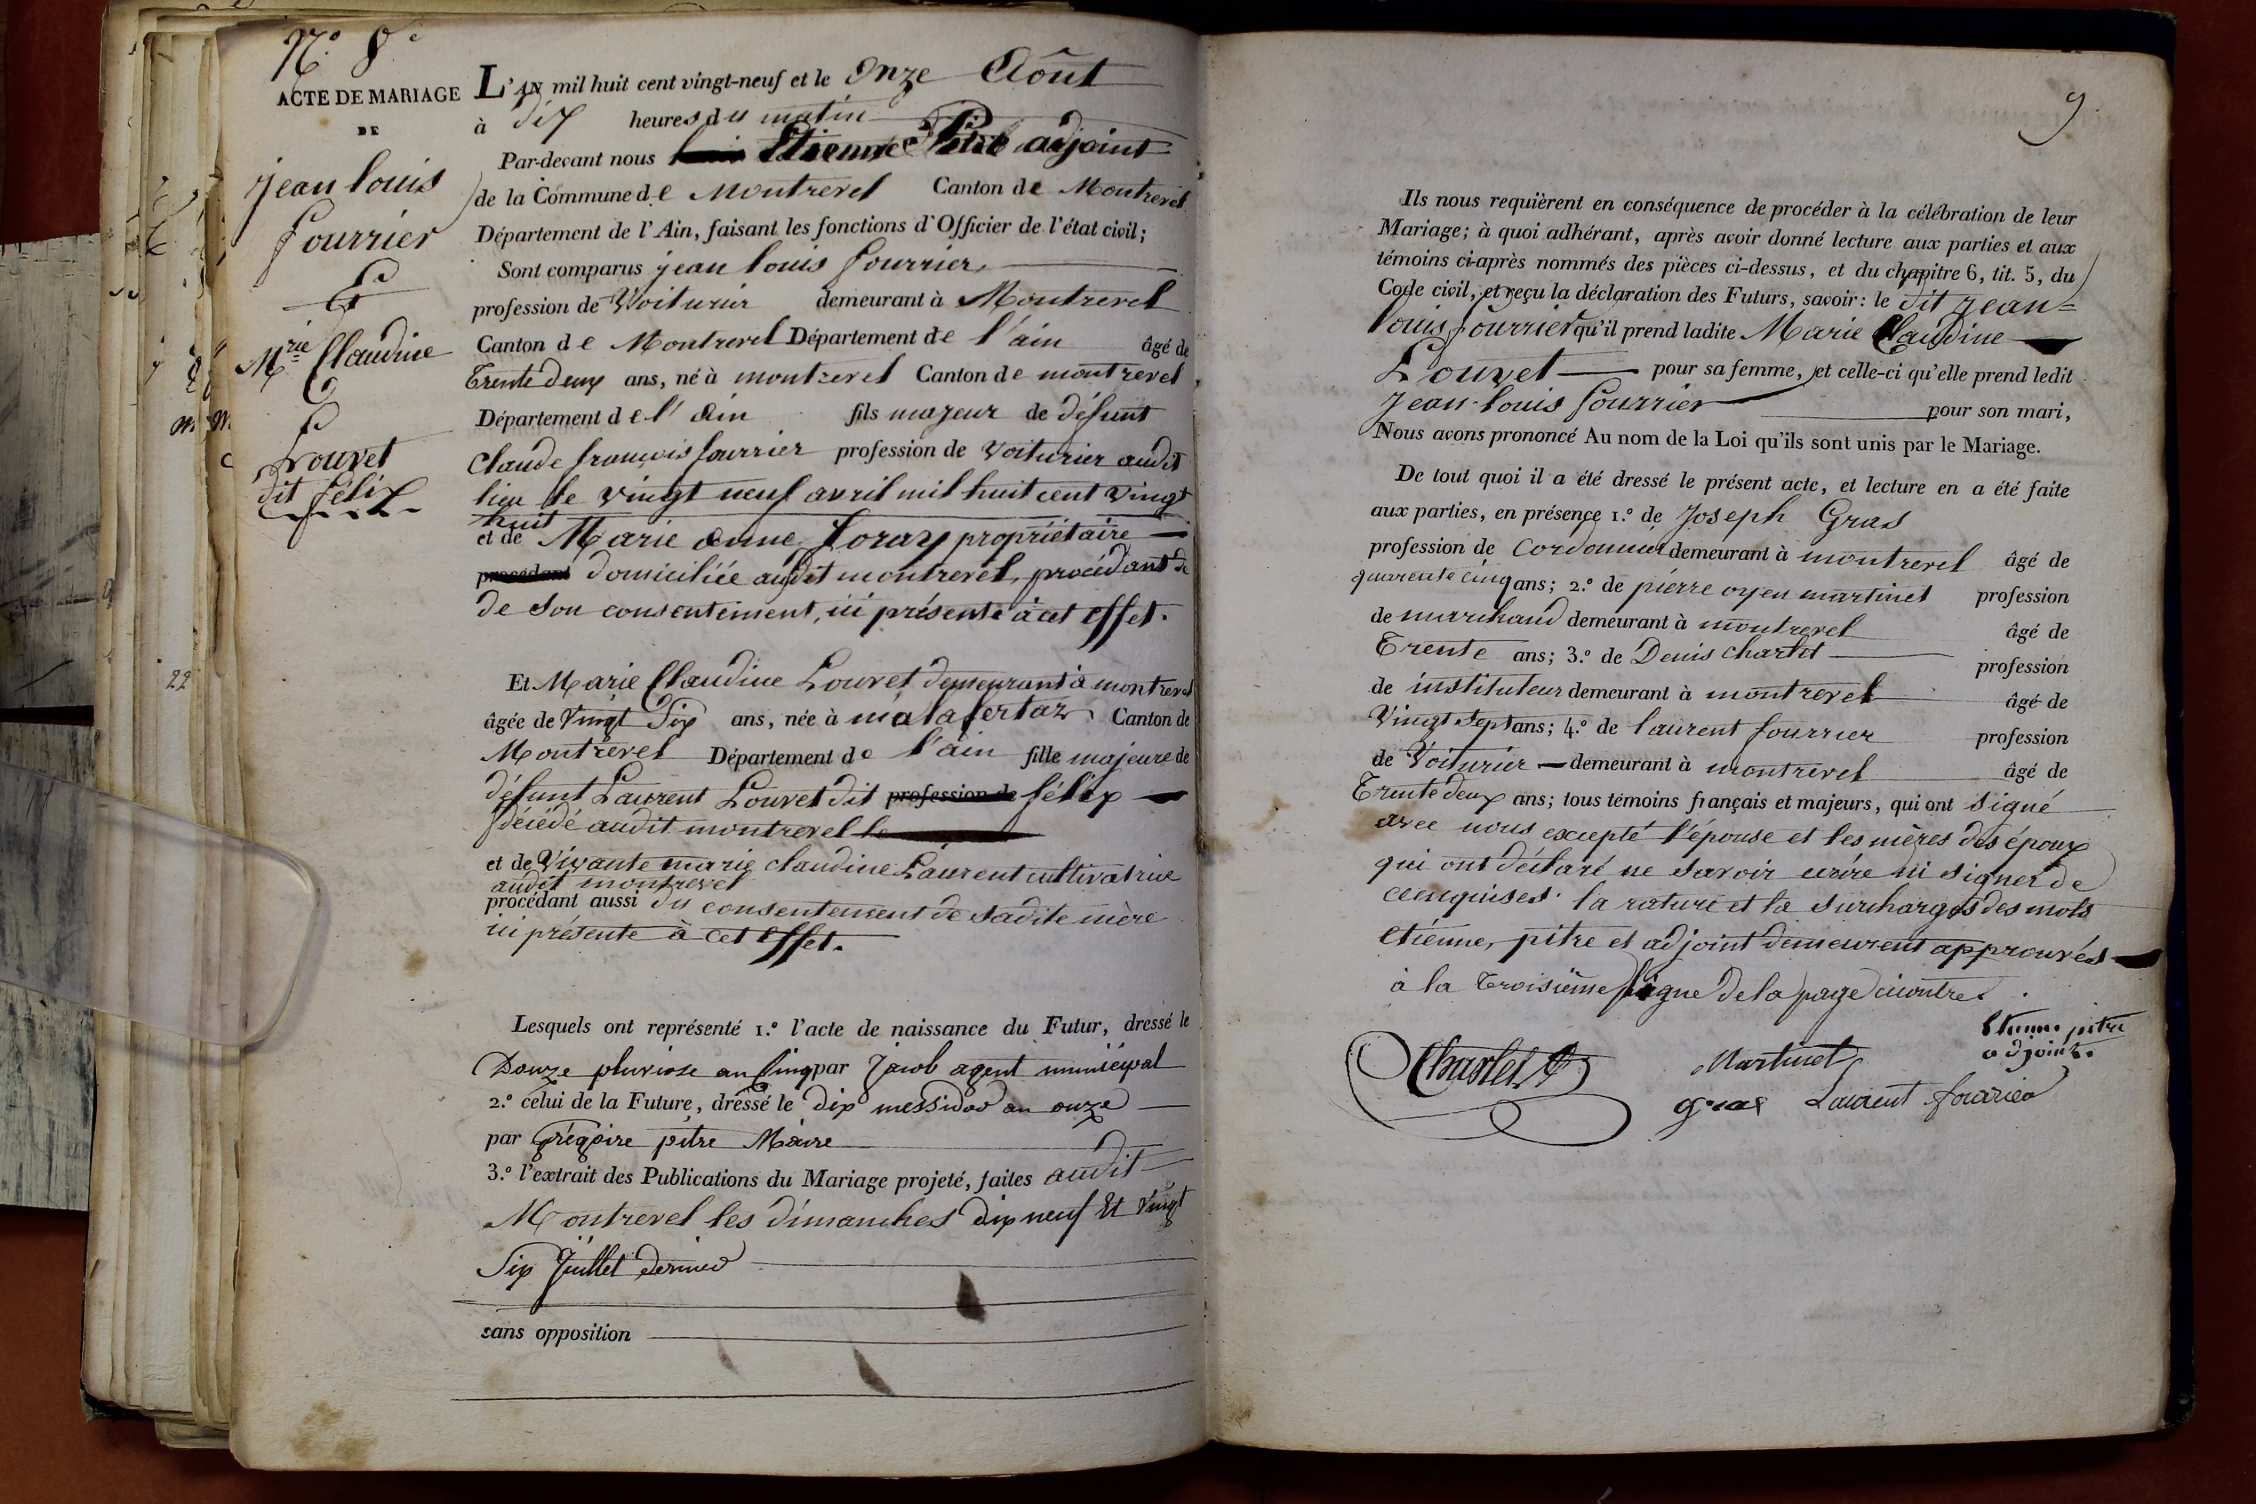 N.º 8.e
ACTE DE MARIAGE
DE
jean louis
fourrier
Et
M.rie Claudine
Louvet
dit félix
L'AN mil huit cent vingt-neuf et le Onze Aoüt
à dix heures du matin
Par-devant nous Etienne Pitre adjoint
de la Commune de Montrevel Canton de Montrevel
Département de l'Ain, faisant les fonctions d'Officier de l'état civil;
Sont comparus jean louis fourrier,
profession de Voiturier demeurant à Montrevel
Canton de Montrevel Département de l'ain âgé de
Trente deux ans, né à montrevel Canton de montrevel
Département de l'ain fils majeur de défunt
Claude françois fourrier profession de Voiturier audit
lieu le vingt neuf avril mil huit cent vingt
huit
et de Marie anne Loray propriétaire
procédant domiciliée audit montrevel, procédant de
de son consentement, ici présente à cet effet.
Et Marie Claudine Louvet demeurant à montrevel
âgée de Vingt Six ans, née à malafertaz Canton de
Montrevel Département de l'ain fille majeure de
défunt Laurent Louvet dit profession de félix
décédé audit montrevel le
et de Vivante marie claudine Laurent cultivatrice
audit montrevel
procédant aussi du consentement de sadite mère
ici présente à cet effet.
Lesquels ont représenté 1.º l'acte de naissance du Futur, dressé le
Douze pluviose an Cinq par Jacob agent municipal
2.º celui de la Future, dressé le dix messidor an onze
par Grégoire pitre Maire
3.º l'extrait des Publications du Mariage projeté, faites audit
Montrevel les dimanches dix neuf Et Vingt
Six Juillet dernier
sans opposition
9.
Ils nous requièrent en conséquence de procéder à la célébration de leur
Mariage; à quoi adhérant, après avoir donné lecture aux parties et aux
témoins ci-après nommés des pièces ci-dessus, et du chapitre 6, tit. 5, du
Code civil, et reçu la déclaration des Futurs, savoir: le dit jean=
louis fourrier qu'il prend ladite Marie Claudine
Louvet pour sa femme, et celle-ci qu'elle prend ledit
Jean-louis fourrier pour son mari,
Nous avons prononcé Au nom de la Loi qu'ils sont unis par le Mariage.
De tout quoi il a été dressé le présent acte, et lecture en a été faite
aux parties, en présence 1.º de Joseph Gras
profession de Cordonnier demeurant à montrevel âgé de
quarente cinq ans; 2.º de pierre oyen martinet profession
de marchand demeurant à montrevel âgé de
Trente ans; 3.º de Denis Charlet profession
de instituteur demeurant à montrevel âgé de
Vingt Sept ans; 4.º de laurent fourrier profession
de Voiturier demeurant à montrevel âgé de
Trente deux ans; tous témoins français et majeurs, qui ont signé
avec nous excepté l'épouse et les mères des époux
qui ont déclaré ne savoir écrire ni signer de
ce requises. la rature et la surcharges des mots
etienne, pitre et adjoint demeurent approuvés
à la Troisième ligne de la page ci contre.
Etienne pitre
adjoint.
Charlet Martinet
gras Laurent fourrier
22